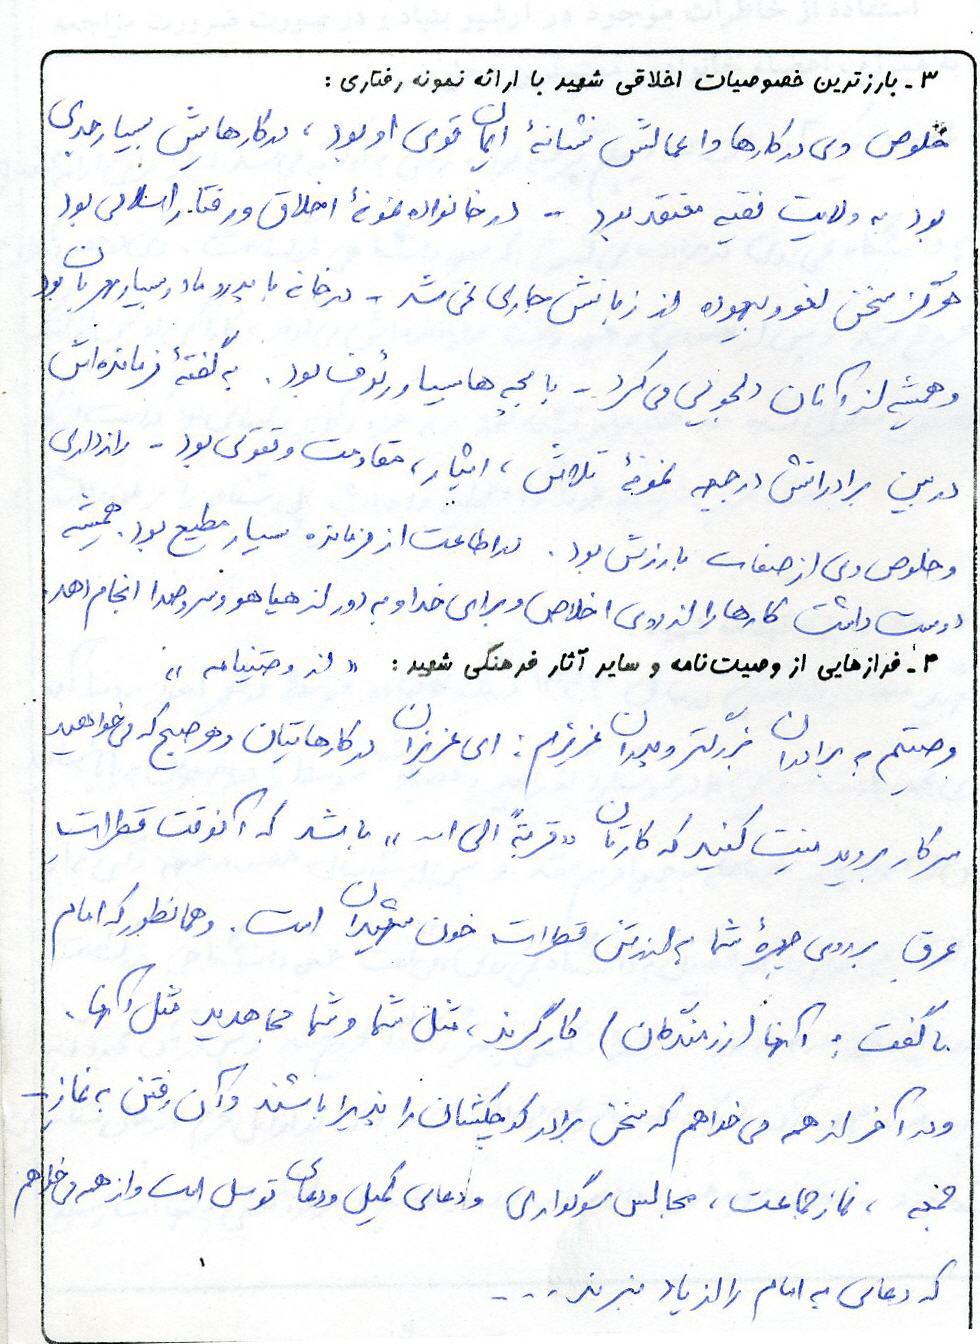 ۳ـ بارزترین خصوصیات اخلاقی شهید با ارائه نمونه رفتاری :
خلوص وی در کارها و اعمالش نشانهٔ ایمان قوی او بود ، در کارهایش بسیار جدی
بود به ولایت فقیه معتقد بود - در خانواده نمونهٔ اخلاق و رفتار اسلامی بود
هرگز سخن لغو و بیهوده از زبانش جاری نمی شد - در خانه با پدر و مادر بسیار مهربان بود
و همیشه از آنان دلجویی می کرد - با بچه ها بسیار رئوف بود . به گفتهٔ فرمانده اش
در بین برادرانش در جبهه نمونهٔ تلاش ، ایثار ، مقاومت و تقوی بود - رازداری
و خلوص وی از صفات بارزش بود . در اطاعت از فرمانده بسیار مطیع بود . همیشه
دوست داشت کارها را از روی اخلاص و برای خدا و به دور از هیاهو و سر و صدا انجام دهد
۴ـ فرازهایی از وصیت نامه و سایر آثار فرهنگی شهید : « از وصیتنامه »
وصیتم به برادران بزرگتر و پدران عزیزم : ای عزیزان در کارهایتان و هر صبح که می خواهید
سر کار بروید نیت کنید که کارتان « قربةً الی الله » باشد که آنوقت قطرات
عرق بر روی چهرهٔ شما به ارزش قطرات خون شهیدان است . و همانطور که امام
ما گفت : آنها (رزمندگان) کارگرند ، مثل شما و شما مجاهدید مثل آنها .
و در آخر از همه می خواهم که سخن برادر کوچکشان را پذیرا باشند و آن رفتن به نماز
جمعه ، نماز جماعت ، مجالس سوگواری و دعای کمیل و دعای توسل است و از همه می خواهم
که دعای به امام را از یاد نبرند ....